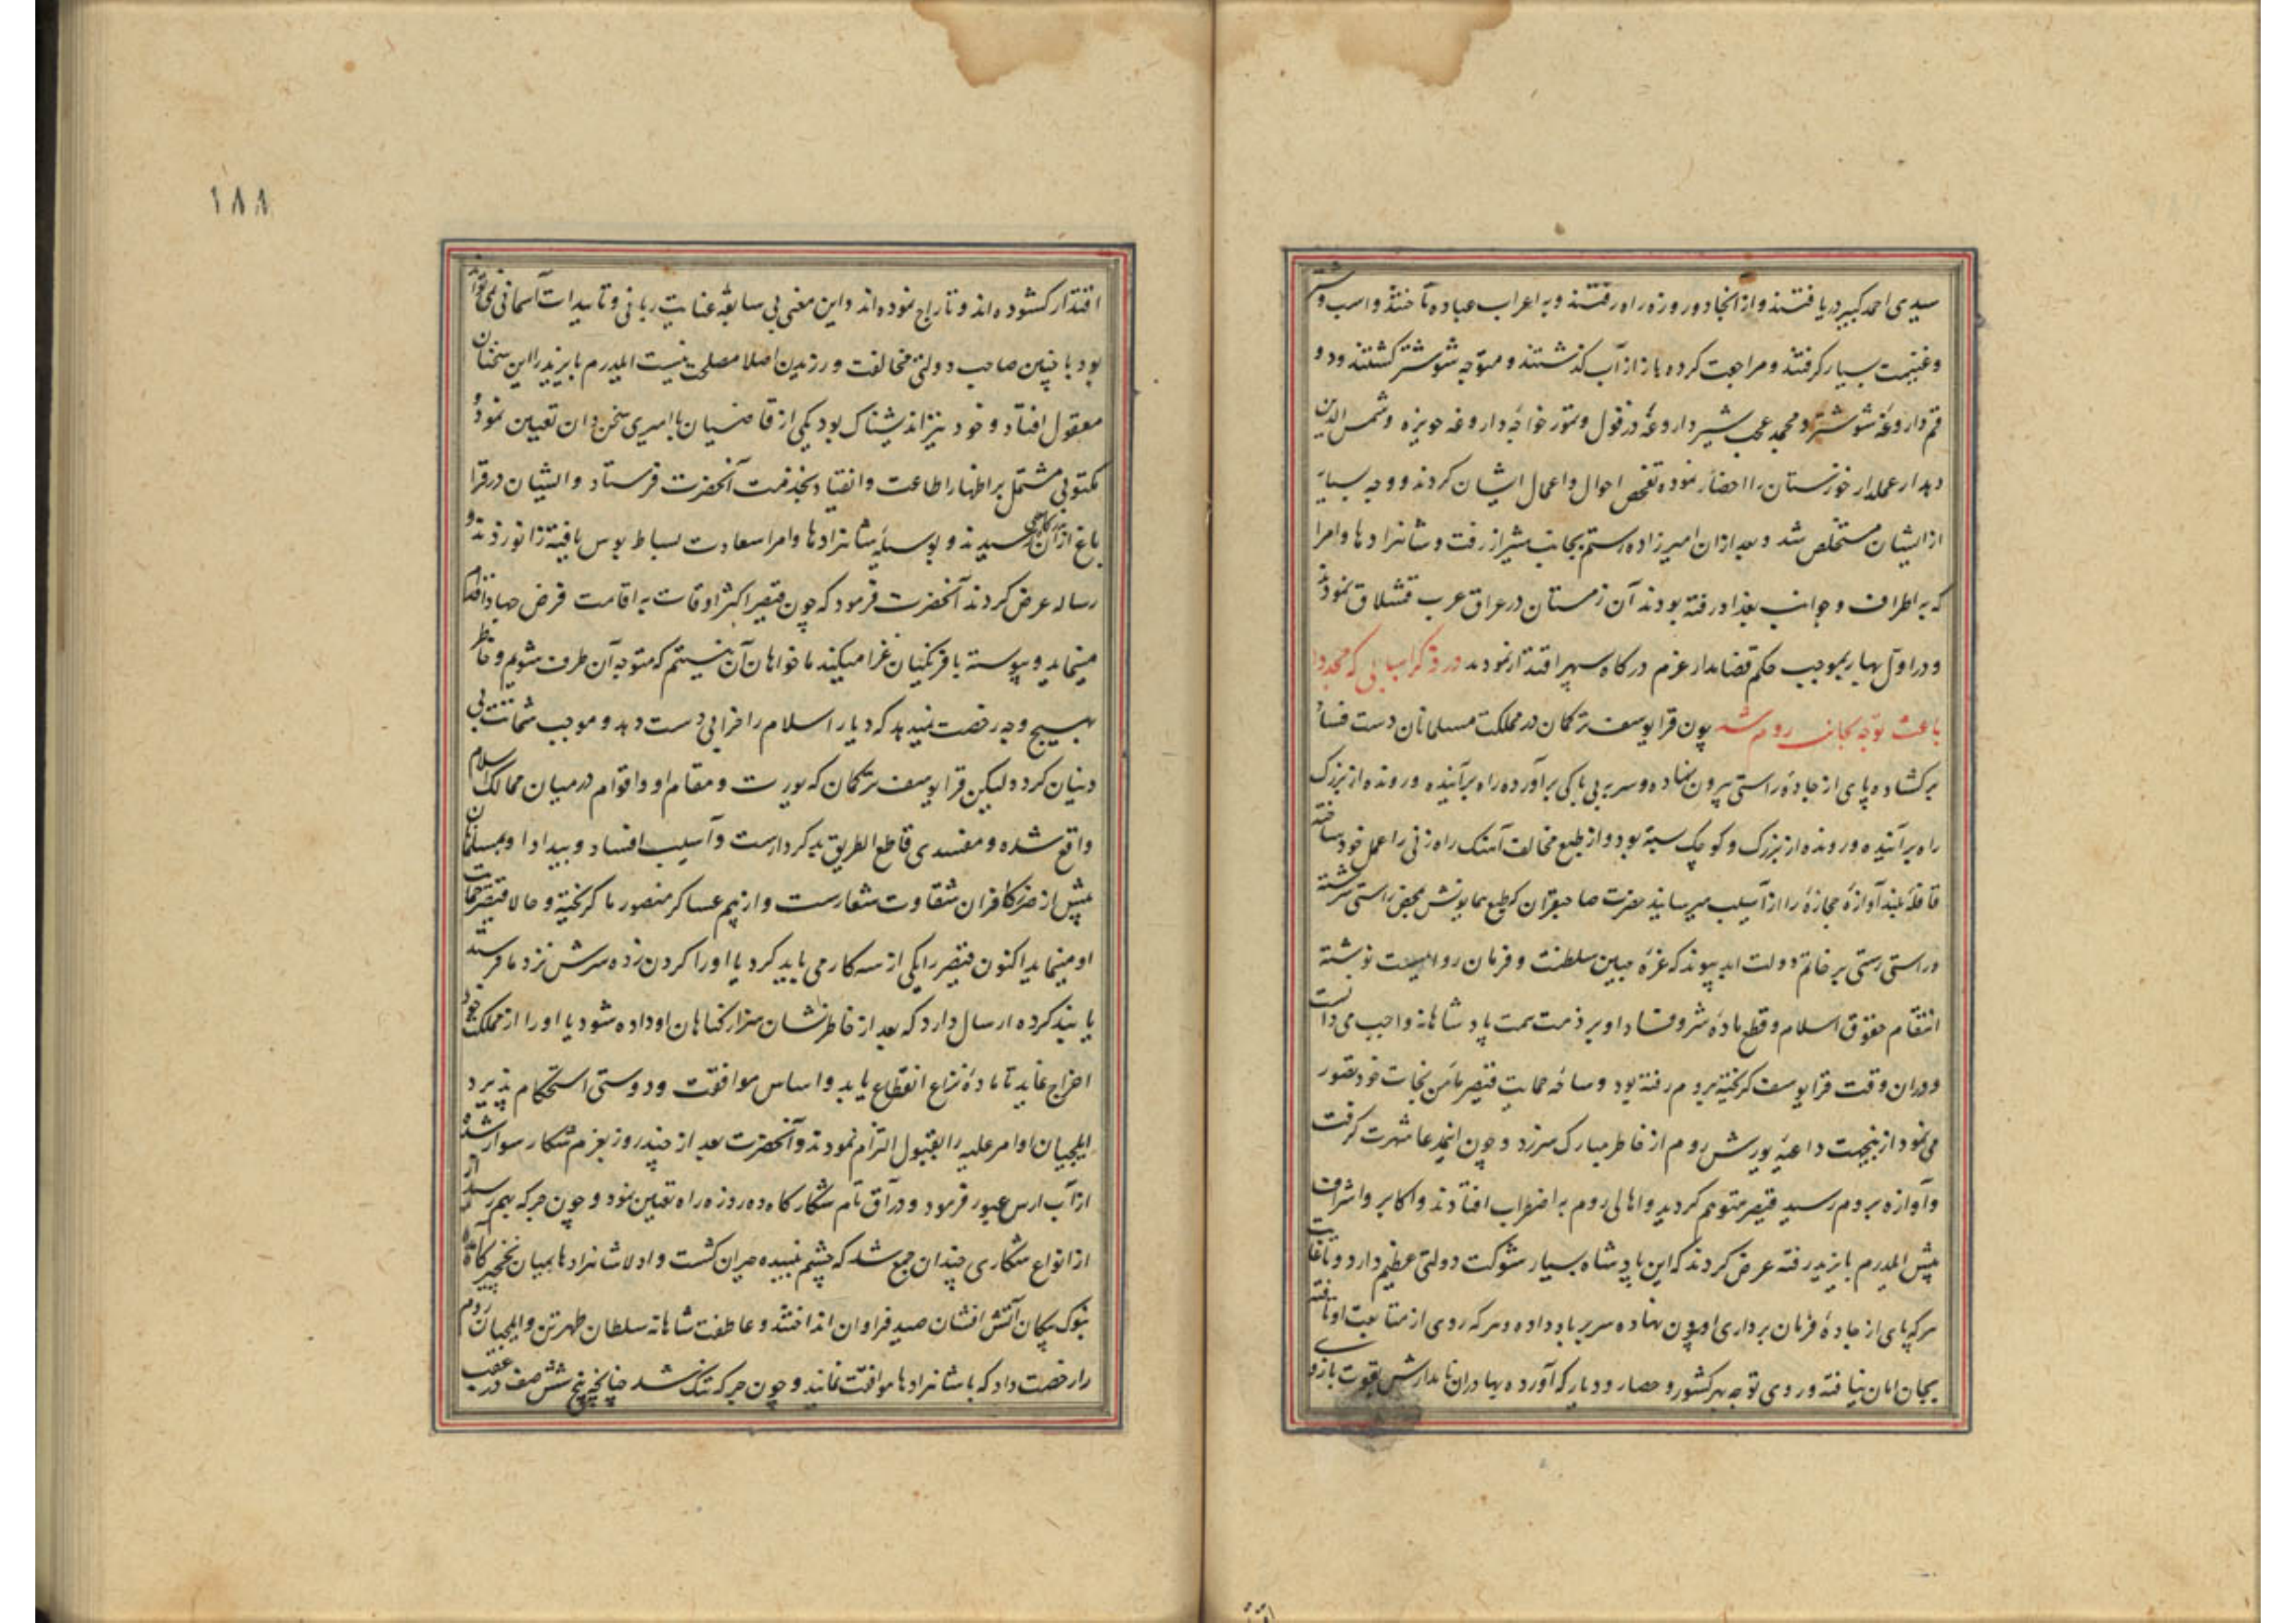 سیدی احمد کبیر دریافتند و از آنجا دو روزه راه رفتند و به اعراب عباده تاختند و اسب و شتر
و غنیمت بسیار گرفتند و مراجعت کرده باز از آب گذشتند و متوجه شوشتر گشتند و دو
قم داروغهٔ شوشتر و محمد عجب شیر داروغهٔ دزفول و تمور خواجه داروغه حویزه و شمس الدین
دهدار عملدار خوزستان را احضار نموده تفحص احوال و اعمال ایشان کردند و وجه بسیار
از ایشان مستخلص شد و بعد ازان امیرزاده رستم بجانب شیراز رفت و شاهزادها و امرا
که به اطراف و جوانب بغداد رفته بودند آن زمستان در عراق عرب قشلاق نمودند
و در اول بهار بموجب حکم قضا مدار عزم درگاه سپهر اقتدار نمودند در ذکر اسبابی که مجددا
باعث توجه بجانب روم شد چون قرا یوسف ترکمان در مملکت مسلمانان دست فساد
برکشاده پای از جادهٔ راستی بیرون نهاده و سر به بی باکی برآورده راه بر آینده و رونده از بزرگ
راه بر آینده و رونده از بزرگ و کوچک بسته بود و از طبع مخالف آهنگ راه زنی را عمل خود ساخته
قافلهٔ بلند آوازهٔ حجاز را ازار آسیب میرسانید حضرت صاحبقران که طبع همایونش بمحض راستی سرشته
و راستی رستی بر خاتم دولت ابد پیوند که غرهٔ جبین سلطنت و فرمان رواییست نوشته
انتقام حقوق اسلام و قطع مادهٔ شر و فساد او بر ذمت همت پادشاهانه واجب می دانست
و دران وقت قرا یوسف گریخته بروم رفته بود و ساخهٔ حمایت قیصر مأمن نجات خود تصور
می نمود ازینجهت داعیهٔ یورش روم از خاطر مبارک سر زد و چون این مدعا شهرت گرفت
و آوازه بروم رسید قیصر متوهم گردید و اهالی روم به اضطراب افتادند و اکابر و اشراف
پیش ایلدرم بایزید رفته عرض کردند که این پادشاه بسیار شوکت دولتی عظیم دارد و تا غایت
هرکه پای از جادهٔ فرمان برداری او بیرون نهاده سر بر باد داده و هرکه روی از متابعت او تافته
بجان امان نیافته و روی توجه بهر کشور و حصار و دیار که آورده بهادران نامدارش بقوت بازوی
اقتدار کشوده اند و تاراج نموده اند و این معنی بی سابقهٔ عنایت ربانی و تاییدات آسمانی نمی تواند
بود با چنین صاحب دولتی مخالفت ورزیدن اصلا مصلحت نیست ایلدرم بایزید را این سخنان
معقول افتاد و خود نیز اندیشناک بود یکی از قاضیان با امیری سخن دان تعیین نمود و
مکتوبی مشتمل بر اظهار اطاعت و انقیاد بخدمت آنحضرت فرستاد و ایشان در قرا
باغ اران رسیدند و بوسیلهٔ شاهزادها و امرا سعادت بساط بوس یافته زانو زدند و
رساله عرض کردند آنحضرت فرمود که چون قیصر اکثر اوقات به اقامت فرض جهاد اقدام
مینماید و پیوسته با فرنگیان غزا میکند ما خواهان آن نیستم که متوجه آن طرف شویم و خاطر
بهیچ وجه رخصت نمیدهد که دیار اسلام را خرابی دست دهد و موجب شماتت بی
دینان گردد لیکن قرا یوسف ترکمان که یورت و مقام او و اقوام در میان ممالک اسلام
واقع شده و مفسدی قاطع الطریق بد کردارست و آسیب افساد و بیداد او بمسلمانان
بیش از ضرر کافران شقاوت شعارست و از بیم عساکر منصور ما گریخته و حالا قیصر حمایت
او مینماید اکنون قیصر را یکی از سه کار می باید کرد یا او را گردن زده سرش نزد ما فرستد
یا بند کرده ارسال دارد که بعد از خاطر نشان سزا گناهان او داده شود یا او را از مملکت خود
اخراج نماید تا مادهٔ نزاع انقطاع یابد و اساس موافقت و دوستی استحکام پذیرد
ایلچیان اوامر علیه را بقبول التزام نمودند و آنحضرت بعد از چند روز بعزم شکار سوار شده
از آب ارس عبور فرمود و در آق تام شکارگاه ده روزه راه تعیین نمود و چون جرگه بهم رسید
از انواع شکاری چندان جمع شد که چشم بیننده حیران گشت و اولا شاهزادها بمیان نخجیرگاه
بنوک پیکان آتش افشان صید فراوان انداختند و عاطفت شاهانه سلطان طهرتن و ایلچیان روم
را رخصت داد که با شاهزادها موافقت نمایند و چون جرگه تنک شد چنانچه پنج شش صف در عقب
۱۸۸